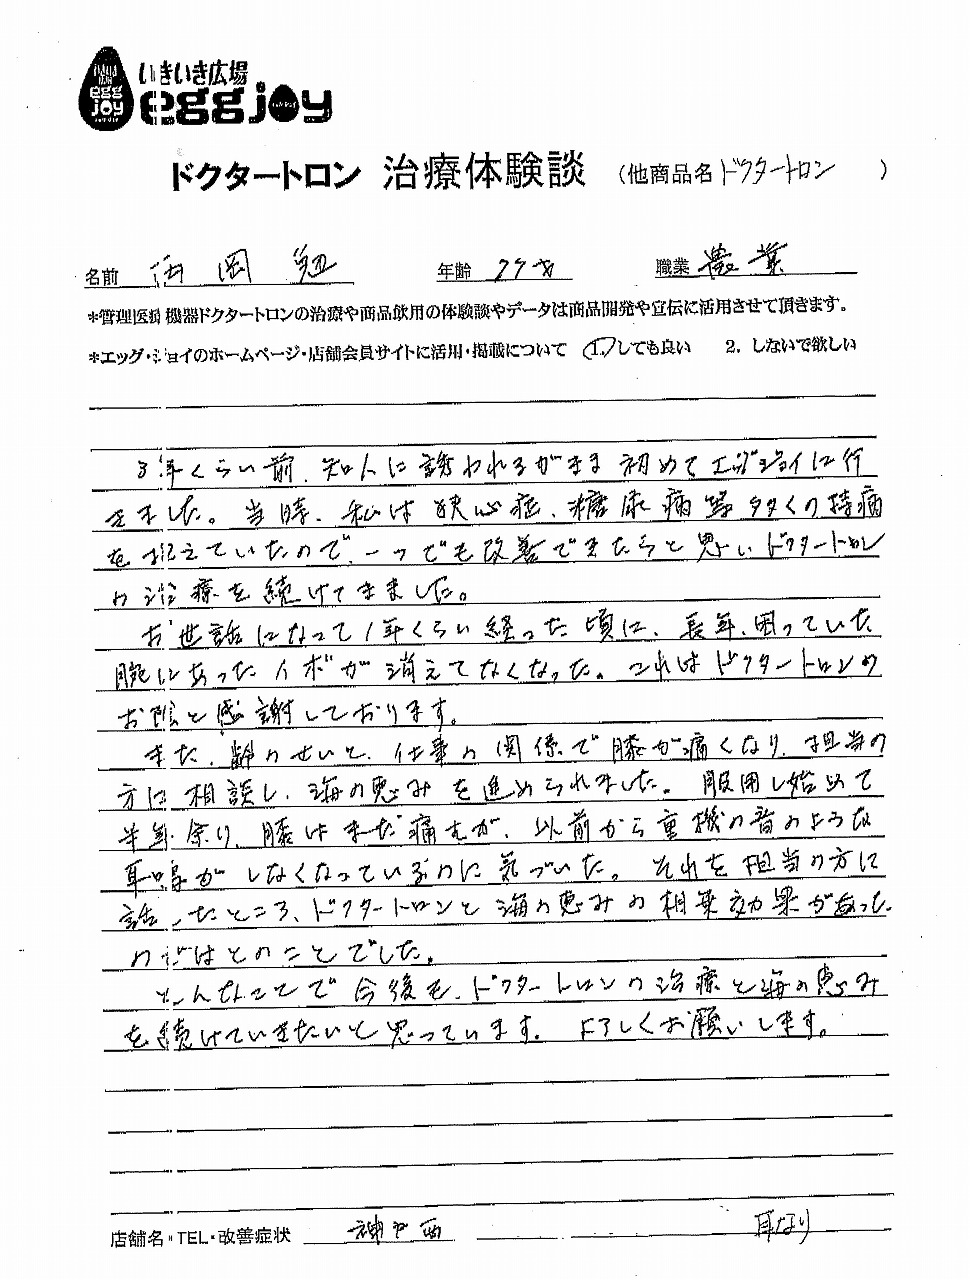 いきいき広場
eggjoy
egg
joy
ドクタートロン 治療体験談 (他商品名 ドクタートロン )
名前 岡 勉 年齢 77才 職業 農業
*管理医療機器ドクタートロンの治療や商品飲用の体験談やデータは商品開発や宣伝に活用させて頂きます。
*エッグ・ジョイのホームページ・店舗会員サイトに活用・掲載について 1.しても良い 2.しないで欲しい
3年くらい前、知人に誘われるがまま初めてエッグジョイに行
きました。当時、私は狭心症、糖尿病等多くの持病
を抱えていたので、一つでも改善できたらと思いドクタートロン
の治療を続けてきました。
お世話になって1年くらい経った頃に、長年、困っていた
腕にあったイボが消えてなくなった。これはドクタートロンの
お陰と感謝しております。
また、齢のせいと、仕事の関係で膝が痛くなり、担当の
方に相談し、海の恵みを進められました。服用し始めて
半年余り、膝はまだ痛むが、以前から重機の音のような
耳鳴がしなくなっているのに気づいた。それを担当の方に
話したところ、ドクタートロンと海の恵みの相乗効果があった
のではとのことでした。
そんなことで今後も、ドクタートロンの治療と海の恵み
を続けていきたいと思っています。よろしくお願いします。
店舗名・TEL・改善症状 神戸西 耳なり